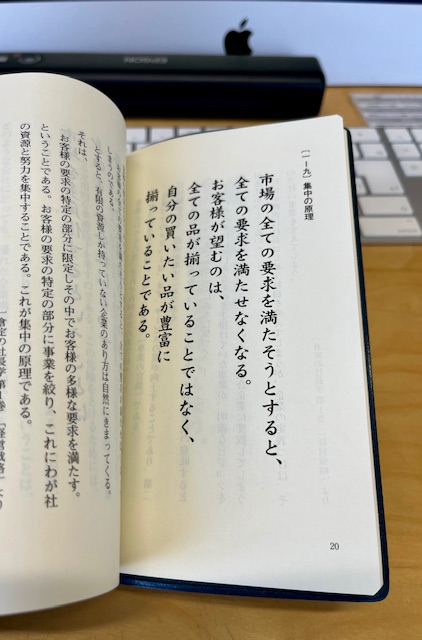 EPSON
〔一―九〕集中の原理
市場の全ての要求を満たそうとすると、
全ての要求を満たせなくなる。
お客様が望むのは、
全ての品が揃っていることではなく、
自分の買いたい品が豊富に
揃っていることである。
20
しまうのである。
とすると、有限の資源しか持っていない企業のあり方は自然にきまってくる。
それは、
お客様の要求の特定の部分に限定しその中でお客様の多様な要求を満たす。
ということである。お客様の要求の特定の部分に事業を絞り、これにわが社
の資源と努力を集中することである。これが集中の原理である。
一倉定の社長学第1巻「経営戦略」より